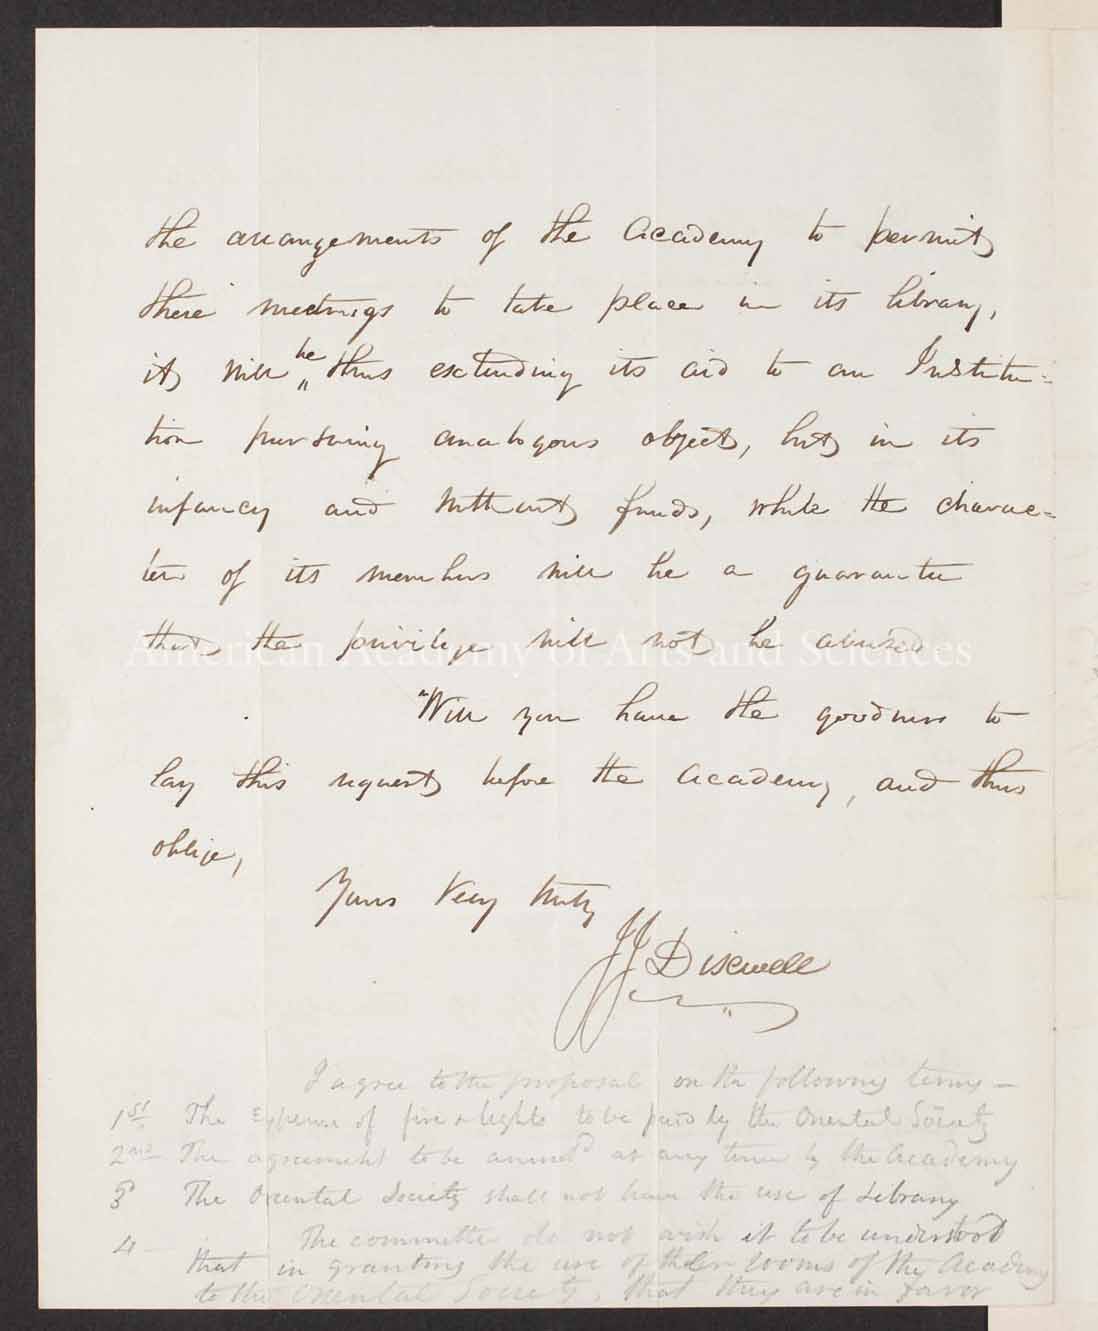 the arrangements of the Academy to permit
these meetings to take place in its library,
it will be thus extending its aid to an Institu=
tion pursuing analogous objects, but in its
infancy and without funds, while the charac=
ter of its members will be a guarantee
that the privilege will not be abused
American Academy of Arts and Sciences
Will you have the goodness to
lay this request before the Academy, and thus
oblige,
Yours very truly
JJ Dixwell
I agree to the proposal on the following terms —
1st The Expense of fire & lights to be paid by the Oriental Society
2nd The agreement to be annulld at any time by the Academy
3d The Oriental Society shall not have the use of Library
4 — The committee do not wish it to be understood
that in granting the use of the rooms of the Academy
to the Oriental Society, that they are in favor